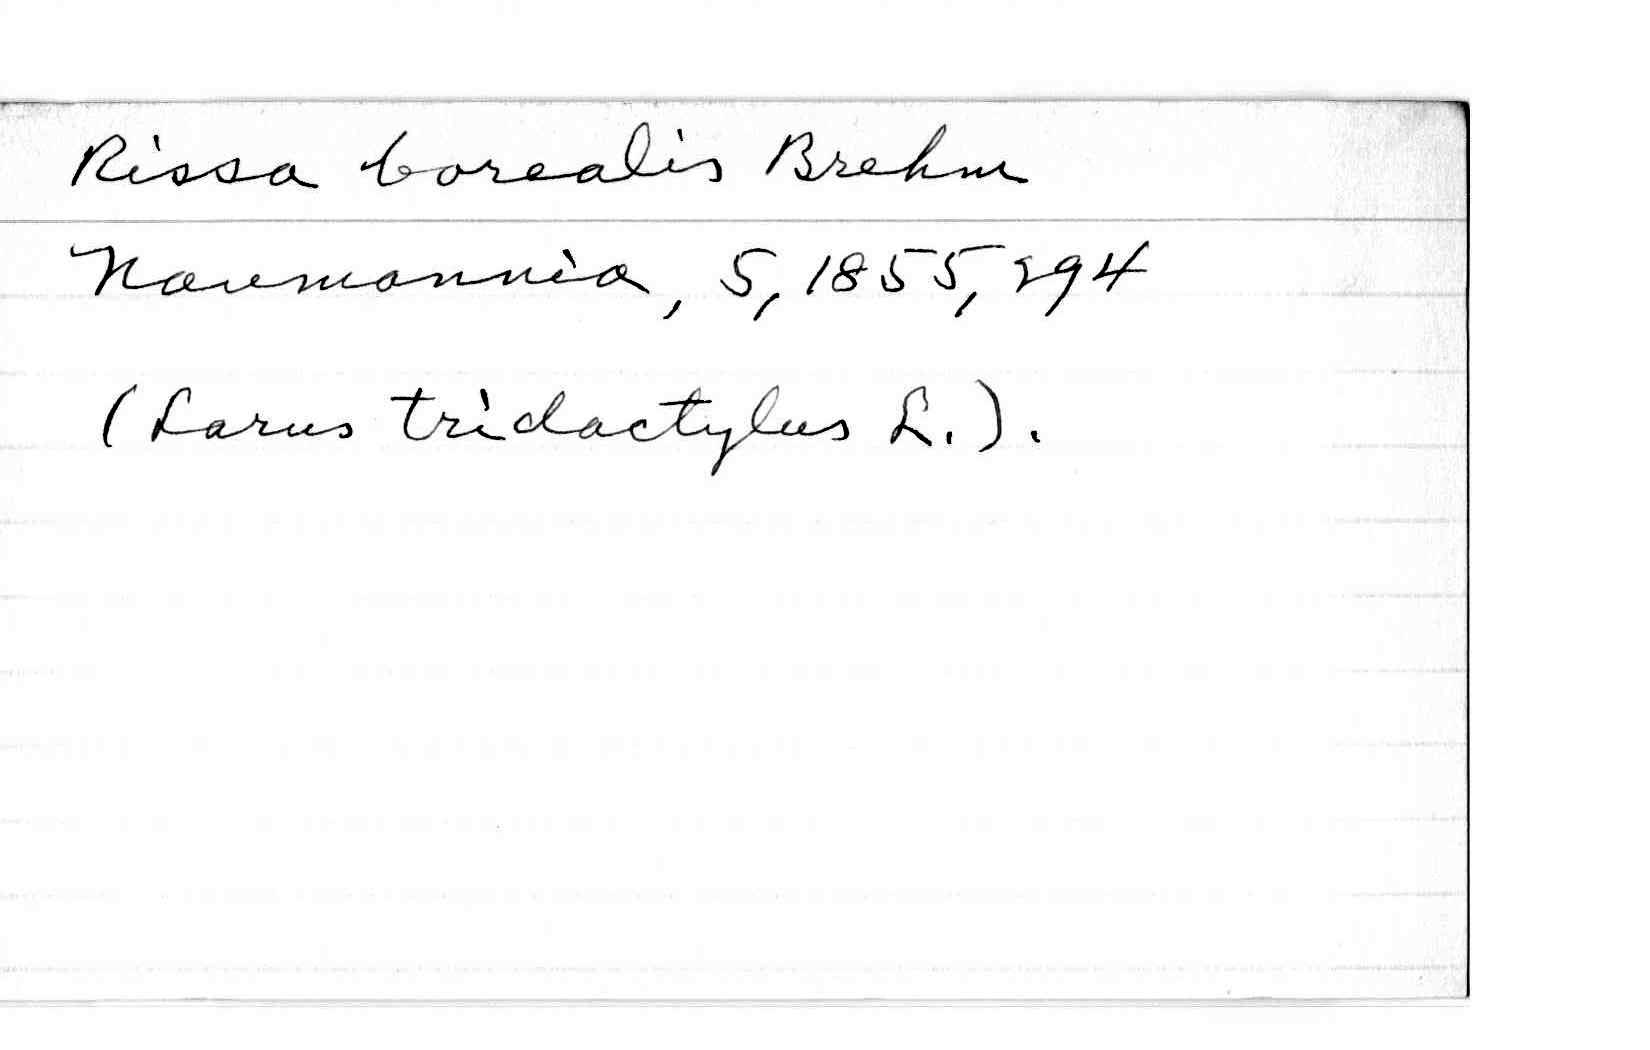 Rissa borealis Brehm
Naumannia, 5, 1855, 294
(Larus tridactylus L.).